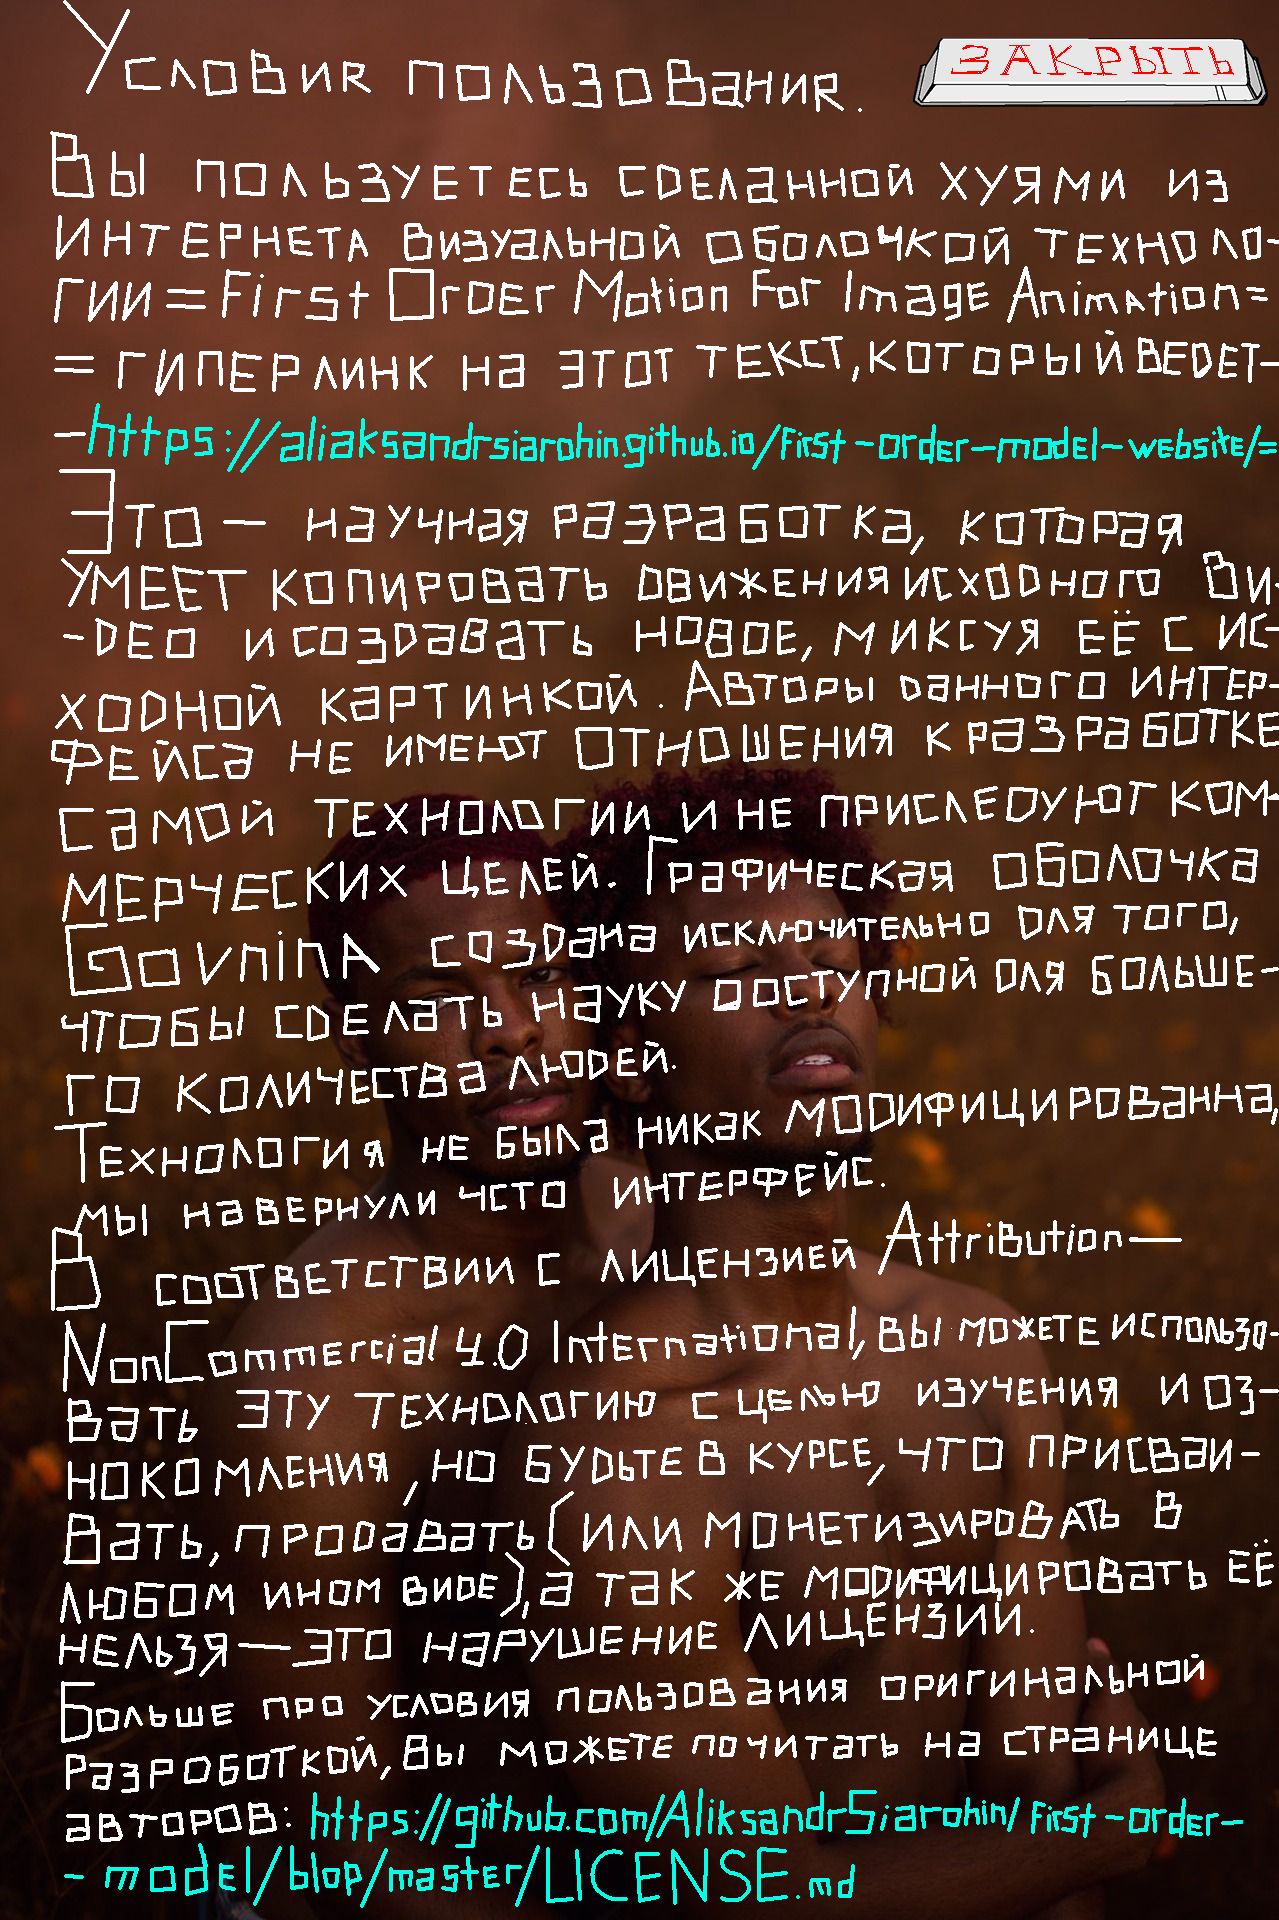 Условия пользования.
ЗАКРЫТЬ
Вы пользуетесь сделанной хуями из
интернета визуальной оболочкой техноло-
гии =First Order Motion For Image Animation=
= гиперлинк на этот текст, который ведет-
-https://aliaksandrsiarohin.github.io/first-order-model-website/=
Это — научная разработка, которая
умеет копировать движения исходного ви-
-део и создавать новое, миксуя её с ис-
ходной картинкой. Авторы данного интер-
фейса не имеют отношения к разработке
самой технологии и не приследуют ком-
мерческих целей. Графическая оболочка
GovninA создана исключительно для того,
чтобы сделать науку доступной для больше-
го количества людей.
Технология не была никак модифицированна,
мы навернули чсто интерфейс.
В соответствии с лицензией Attribution—
NonCommercial 4.0 International, вы можете использо-
вать эту технологию с целью изучения и оз-
нокомления, но будьте в курсе, что присваи-
вать, продавать (или монетизировать в
любом ином виде), а так же модифицировать её
нельзя — это нарушение лицензии.
Больше про условия пользования оригинальной
разроботкой, Вы можете почитать на странице
авторов: https://github.com/AliksandrSiarohin/first-order-
- model/blop/master/LICENSE.md